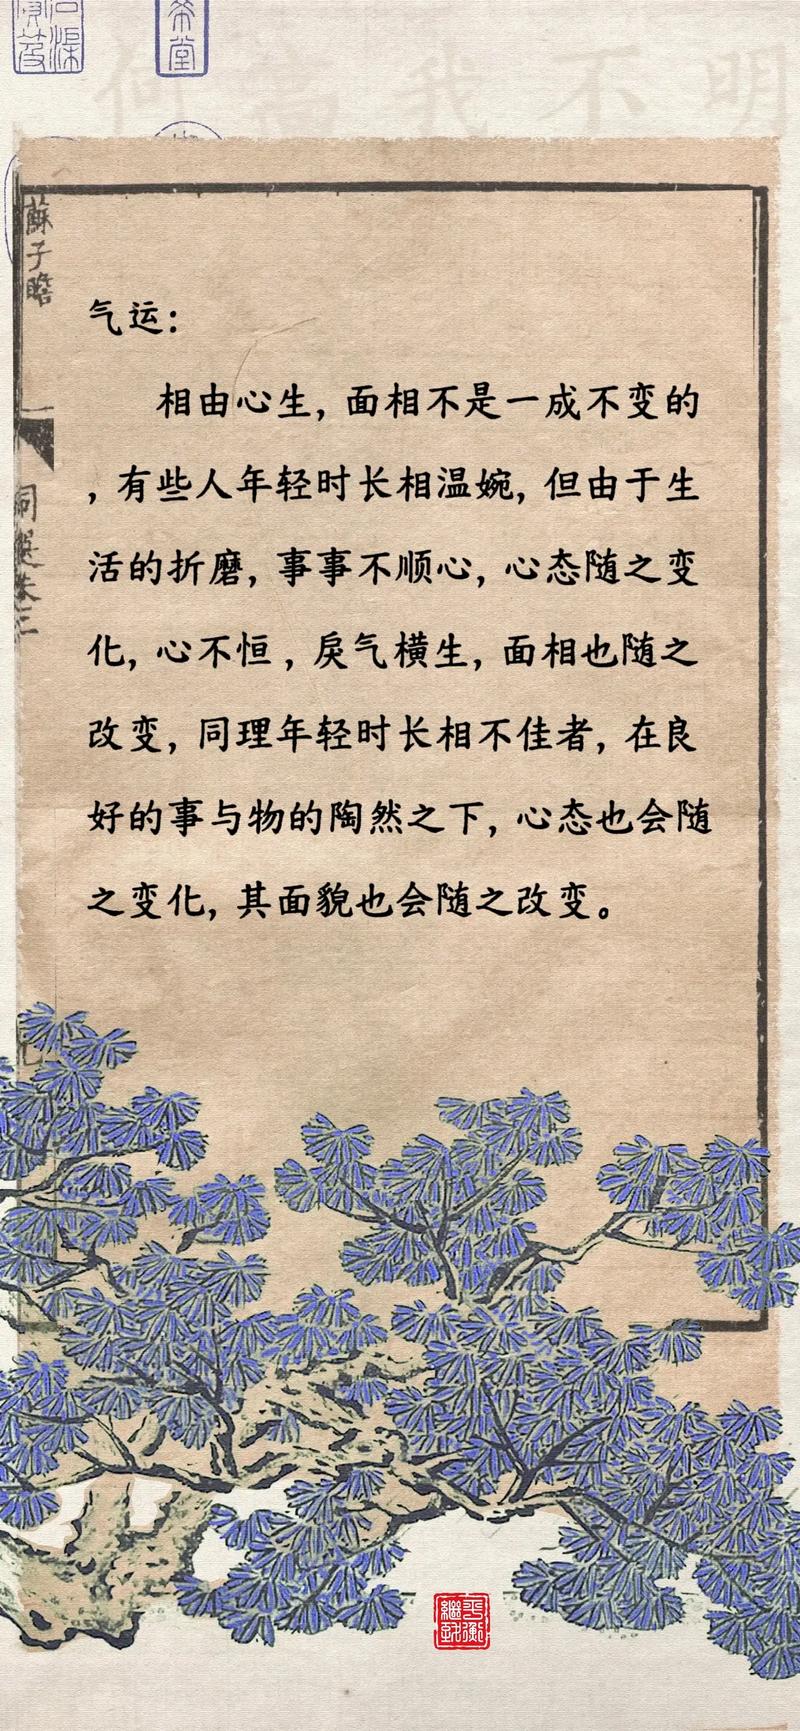 明
不
我
何
希堂
蘇子瞻
气运：
相由心生，面相不是一成不变的
，有些人年轻时长相温婉，但由于生
活的折磨，事事不顺心，心态随之变
化，心不恒，戾气横生，面相也随之
改变，同理年轻时长相不佳者，在良
好的事与物的陶然之下，心态也会随
之变化，其面貌也会随之改变。